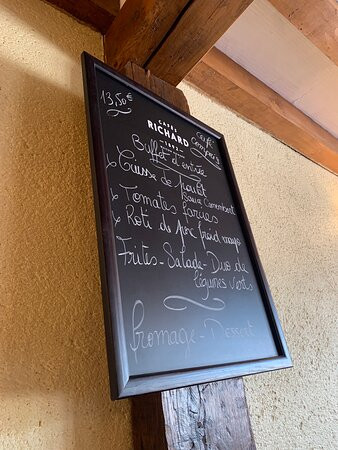 13,50€
CAFÉS
RICHARD
1892
Café
Compris
Buffet d'entrée
x Cuisse de poulet
sauce Camembert
x Tomates farcies
x Roti de porc froid mayo
Frites - Salade - Duo de
légumes verts
fromage - Dessert